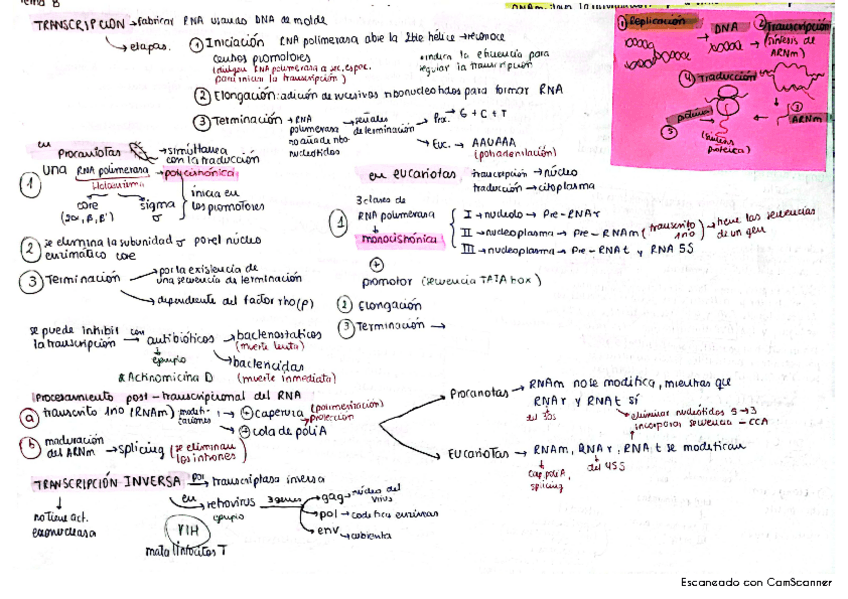 TRANSCRIPCIÓN → fabricar RNA usando DNA de molde
→ etapas.
① Iniciación RNA polimerasa abre la doble hélice → reconoce
centros promotores
(dirigen RNA polimerasa a sec. espec.
para iniciar la transcripción)
• indica la eficiencia para
regular la transcripción
② Elongación: adición de sucesivos ribonucleótidos para formar RNA
③ Terminación → RNA
polimerasa
nucleótidos
→ señales
de terminación
→ Proc. → G + C + T
→ Euc. → AAUAAA
(poliadenilación)
① Replicación
DNA
② Transcripción
(síntesis de
ARNm)
④ Traducción
③
ARNm
⑤
proteína
(síntesis
proteica)
en
procariotas
→ simultánea
con la traducción
→ policistrónica
① una RNA polimerasa
Holoenzima
core
(2α, β, β')
sigma
σ
inicia en
los promotores
② se elimina la subunidad σ por el núcleo
enzimático core
③ Terminación
→ por la existencia de
una secuencia de terminación
→ dependiente del factor rho (ρ)
en eucariotas
transcripción → núcleo
traducción → citoplasma
3 clases de
① RNA polimerasa
monocistrónica
I → nucleolo → Pre-RNAr
II → nucleoplasma → Pre-RNAm (transcrito
1rio) → tiene las secuencias
de un gen
III → nucleoplasma → Pre-RNAt y RNA 5S
+
promotor (secuencia TATA box)
② Elongación
③ Terminación →
se puede inhibir
la transcripción
con → antibióticos
→ bacteriostáticos
(muerte lenta)
→ bactericidas
(muerte inmediata)
ejemplo
Actinomicina D
Procesamiento post-transcripcional del RNA
ⓐ transcrito 1rio (RNAm) modifi-
caciones
→ + caperuza (polimerización)
protección
→ + cola de poli A
ⓑ maduración
del ARNm → splicing (se eliminan
los intrones)
Procariotas → RNAm no se modifica, mientras que
RNAr y RNAt sí
del 30S
• eliminar nucleótidos 5→3
incorporar secuencia -CCA
Eucariotas → RNAm, RNAr, RNAt se modifican
cap, poli A,
splicing
del 45S
TRANSCRIPCIÓN INVERSA por → transcriptasa inversa
no tiene act.
exonucleasa
en
→ retrovirus 3 genes
ejemplo
VIH
mata linfocitos T
→ gag → núcleo del
virus
→ pol → codifica enzimas
→ env → cubierta
Escaneado con CamScanner